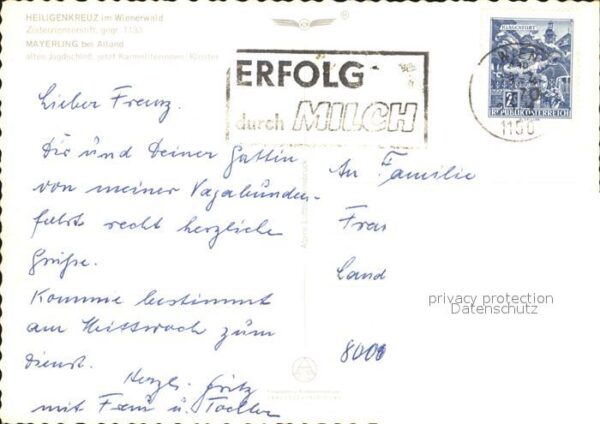 HEILIGENKREUZ im Wienerwald
Zisterzienserstift, gegr. 1133
MAYERLING bei Alland
altes Jagdschloß, jetzt Karmeliterinnen-Kloster
ERFOLG
durch MILCH
KLAGENFURT
2S
REPUBLIK ÖSTERREICH
1150
Lieber Frenz.
Dir und Deiner Gattin
von meiner Vagabunden-
fahrt recht herzliche
Grüße.
Komme bestimmt
am Mittwoch zum
Dienst.
Herzl. Fritz
mit Frau u. Tochter
An Familie
Frau
Land
8000
privacy protection
Datenschutz